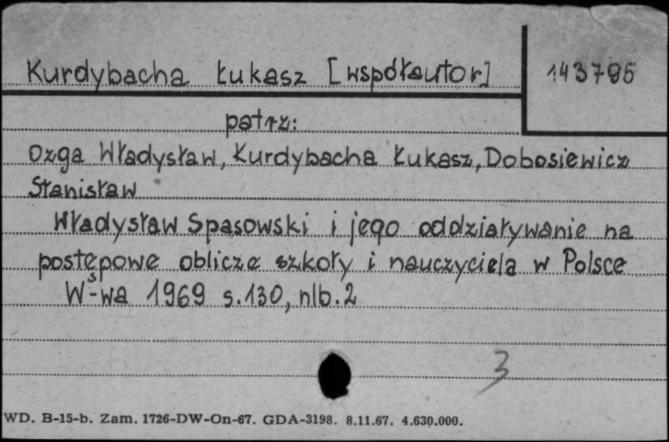 Kurdybacha Łukasz [współautor] 143795
patrz:
Ozga Władysław, Kurdybacha Łukasz, Dobosiewicz
Stanisław
Władysław Spasowski i jego oddziaływanie na
postępowe oblicze szkoły i nauczyciela w Polsce
W-wa 1969 s. 130, nlb. 2
3
WD. B-15-b. Zam. 1726-DW-On-67. GDA-3198. 8.11.67. 4.630.000.